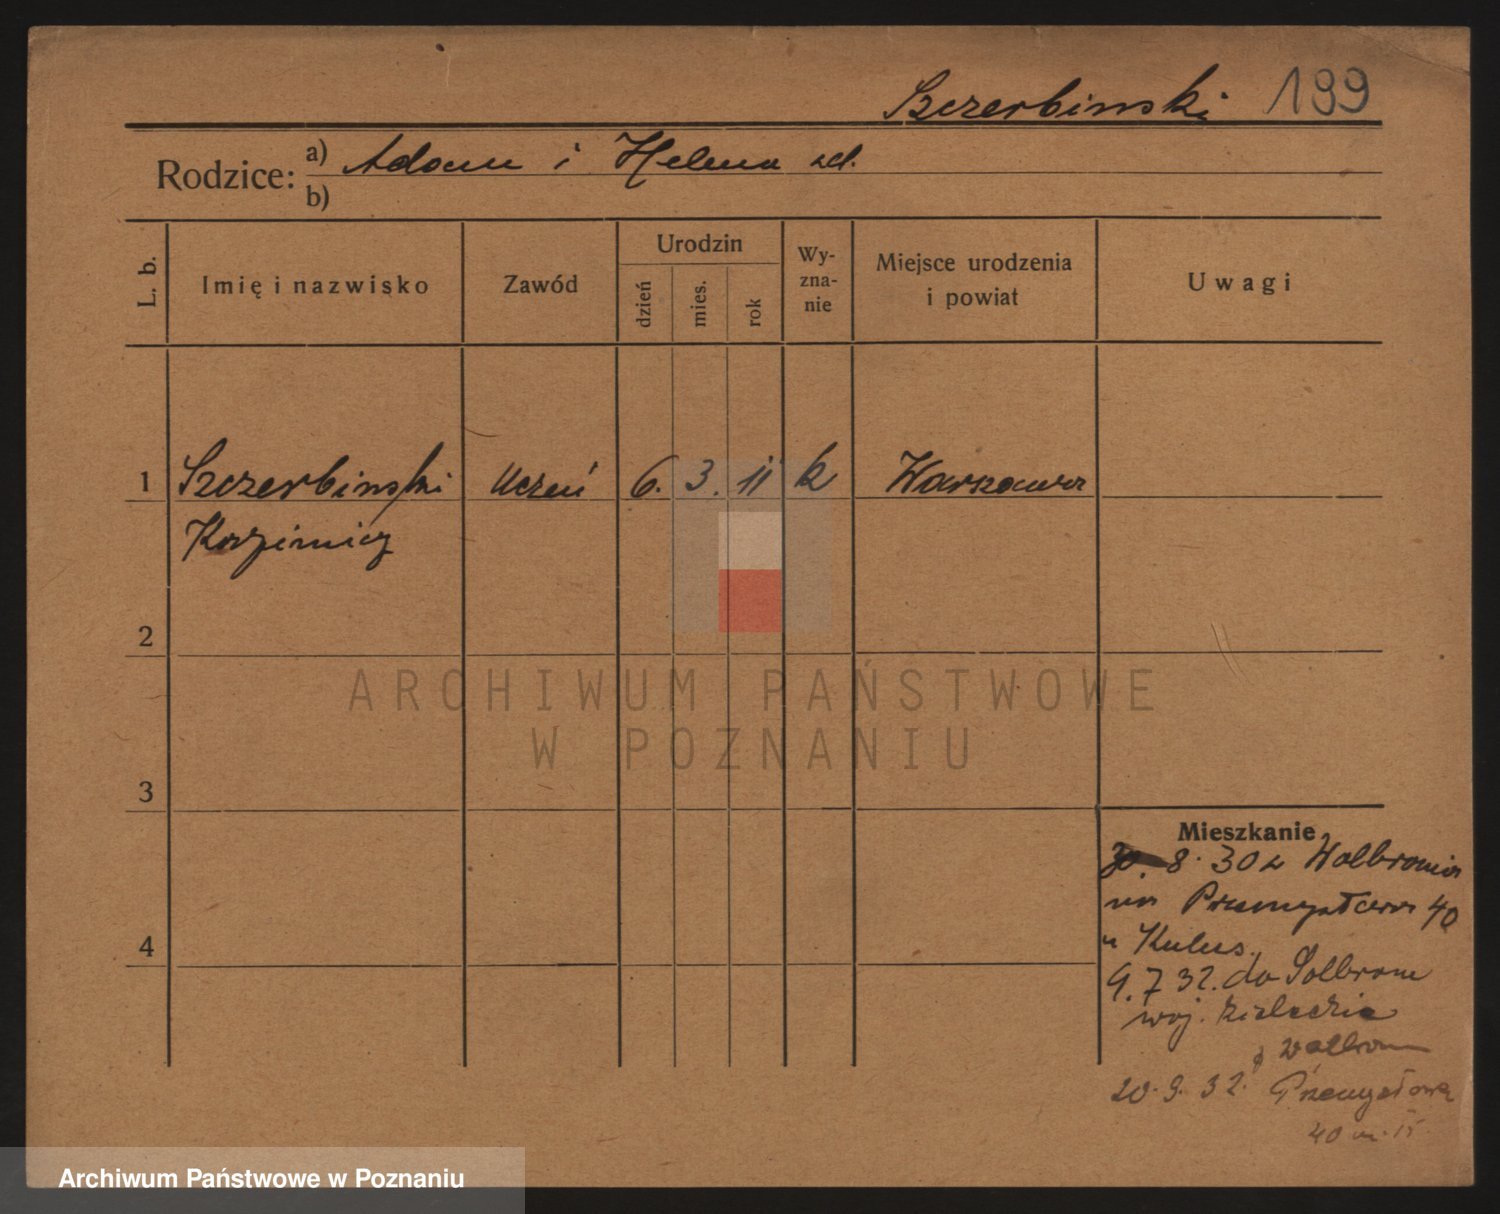 Szczerbinski 199
Rodzice: a) Adam i Helena
b)
L. b.
Imię i nazwisko
Zawód
Urodzin
dzień
mies.
rok
Wy-
zna-
nie
Miejsce urodzenia
i powiat
Uwagi
1 Szczerbinski Uczeń 6. 3. 11 k Warszawa
Kazimierz
2
ARCHIWUM PAŃSTWOWE
W POZNANIU
3
Mieszkanie
30. 8. 30 z Wolbromia
na Przemysłowa 40
u
4
9. 7 32. do Wolbrom
woj. kieleckie
Wolbrom
20. 9. 32. Przemysłowa
40 m.
Archiwum Państwowe w Poznaniu